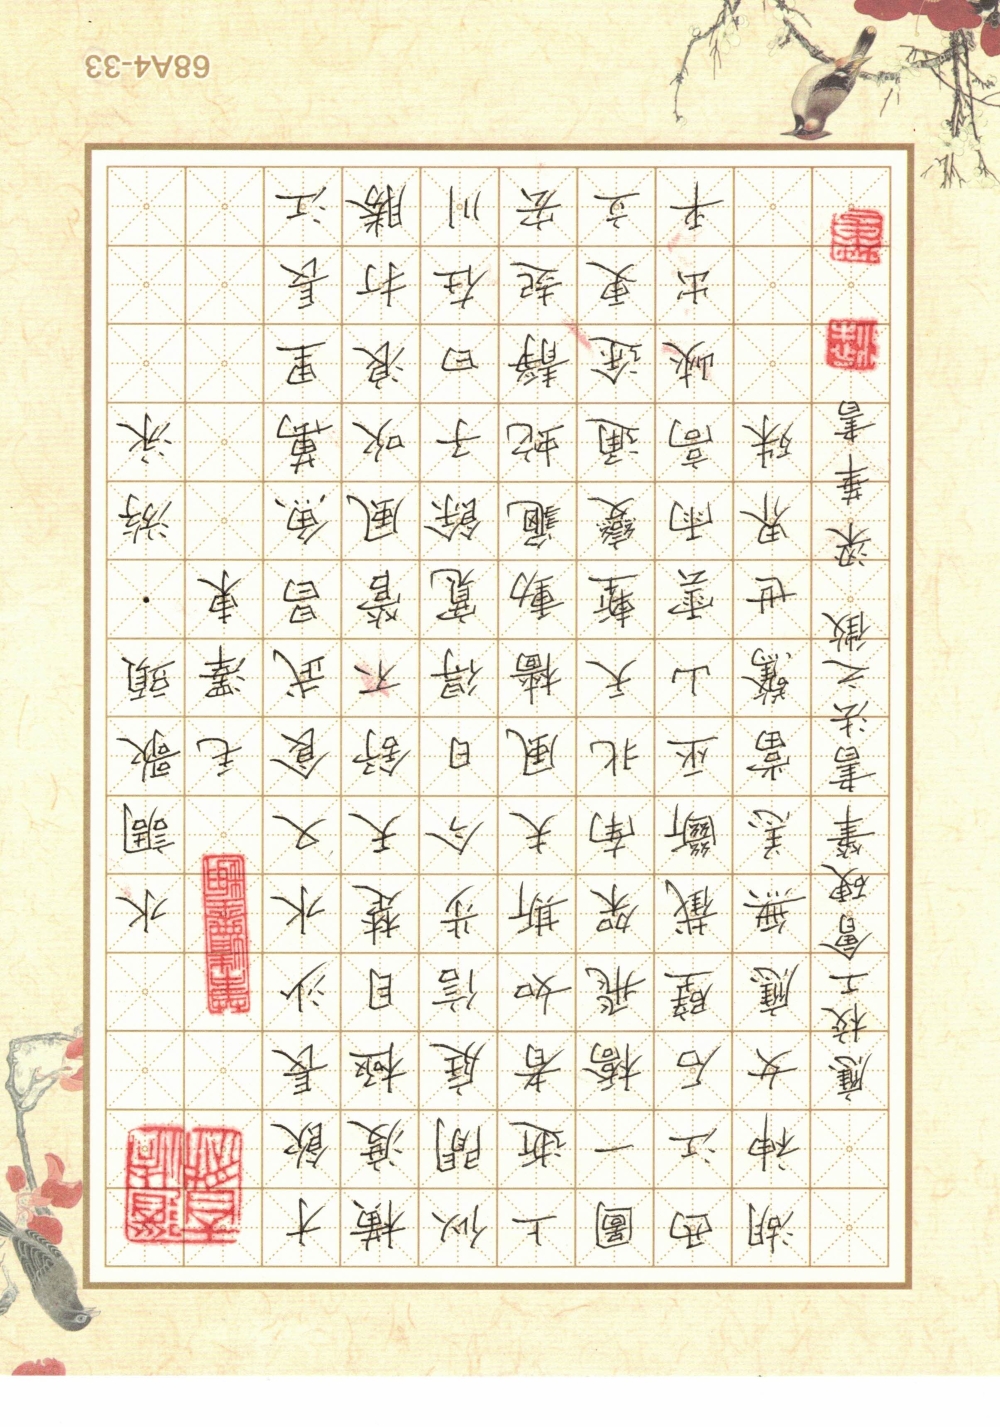 水調歌頭·游泳
毛澤東
才飲長沙水又食武昌魚萬里長江
橫渡極目楚天舒不管風吹浪打勝
似閒庭信步今日得寬餘子曰在川
上逝者如斯夫風檣動龜蛇靜起宏
圖一橋飛架南北天塹變通途更立
西江石壁截斷巫山雲雨高峽出平
湖神女應無恙當驚世界殊
應校工會硬筆書法之徵 梁華書
68A4-33